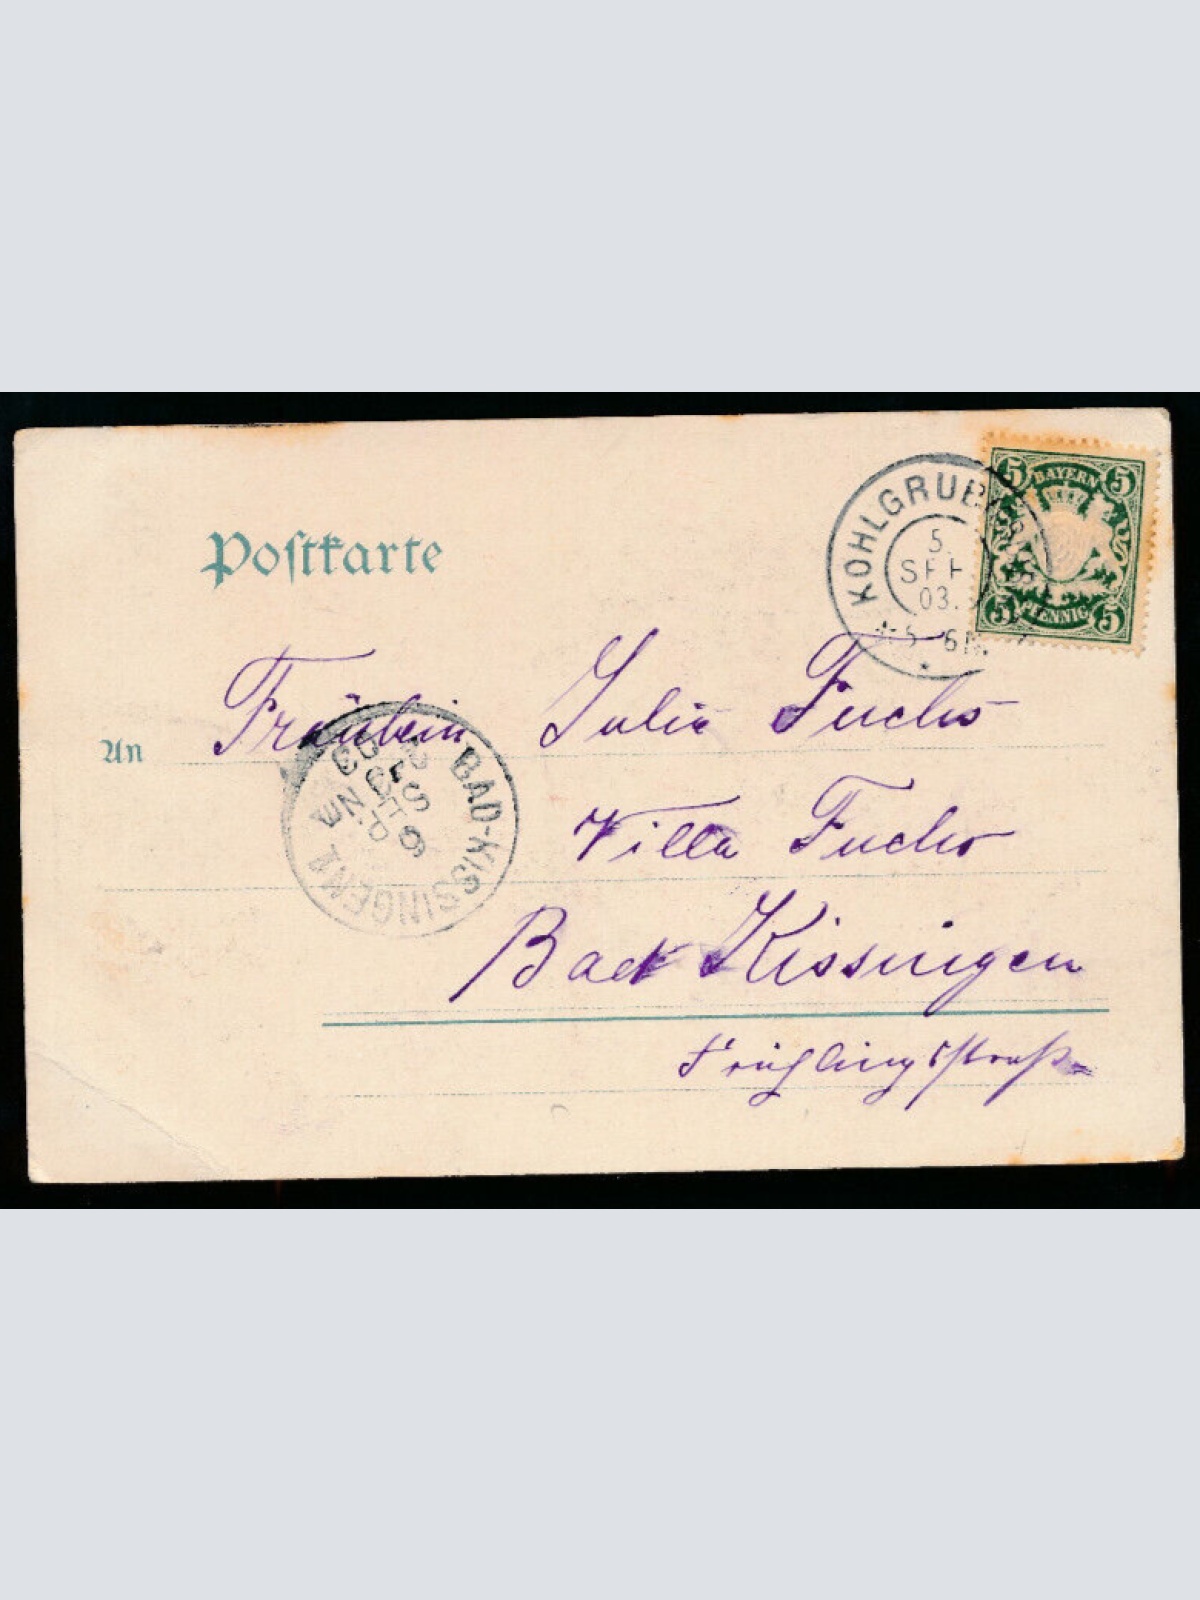 Postkarte
KOHLGRUB
5.
SEP
03.
5 6 N.
5 BAYERN 5
5 PFENNIG 5
An Fräulein Julie Fuchs
BAD-KISSINGEN I
Villa Fuchs
Bad Kissingen
Frühlingstraße